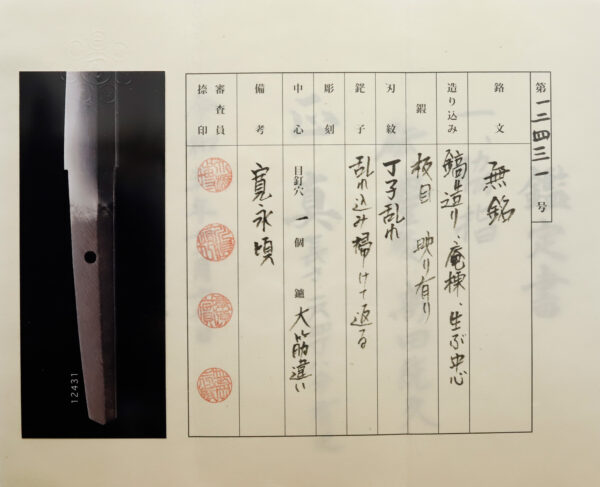 第一二四三一号
銘文 無銘
造り込み 鎬造り、庵棟、生ぶ中心
鍜 板目 映り有り
刃紋 丁子乱れ
鋩子 乱れ込み掃けて返る
彫刻
中心 目釘穴 一個 鑢 大筋違い
備考 寛永頃
審査員捺印
12431